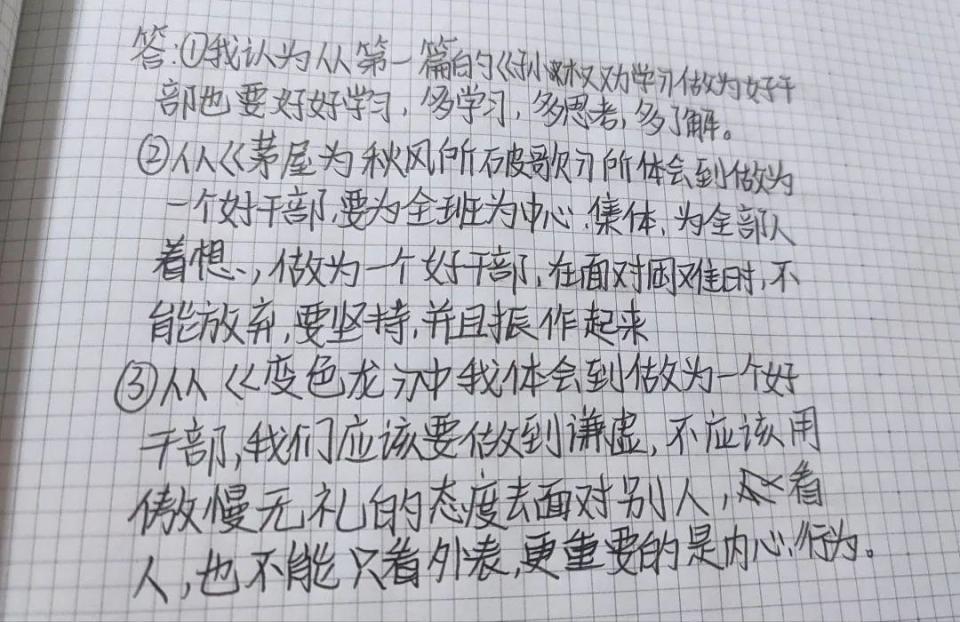 答:①我认为从第一篇的《孙权劝学》做为好干
部也要好好学习,多学习,多思考,多了解。
②从《茅屋为秋风所破歌》所体会到做为
一个好干部,要为全班为中心.集体,为全部人
着想.,做为一个好干部,在面对困难时,不
能放弃,要坚持,并且振作起来
③从《变色龙》中我体会到做为一个好
干部,我们应该要做到谦虚,不应该用
傲慢无礼的态度去面对别人,看
人,也不能只看外表,更重要的是内心.行为。